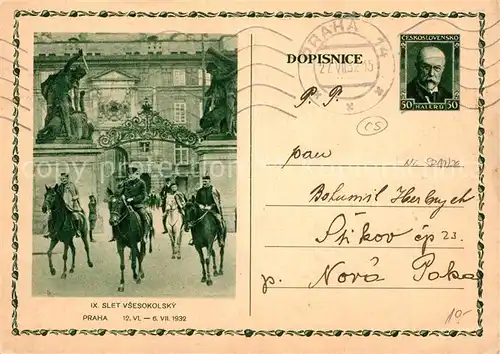 DOPISNICE
ČESKOSLOVENSKO
50 HALÉŘŮ 50
PRAHA 14
P. P.
CS
pan
Bohumil Herbrych
Štikov čp 23.
p. Nová Paka
IX. SLET VŠESOKOLSKÝ
PRAHA 12. VI. — 6. VII. 1932
10.-